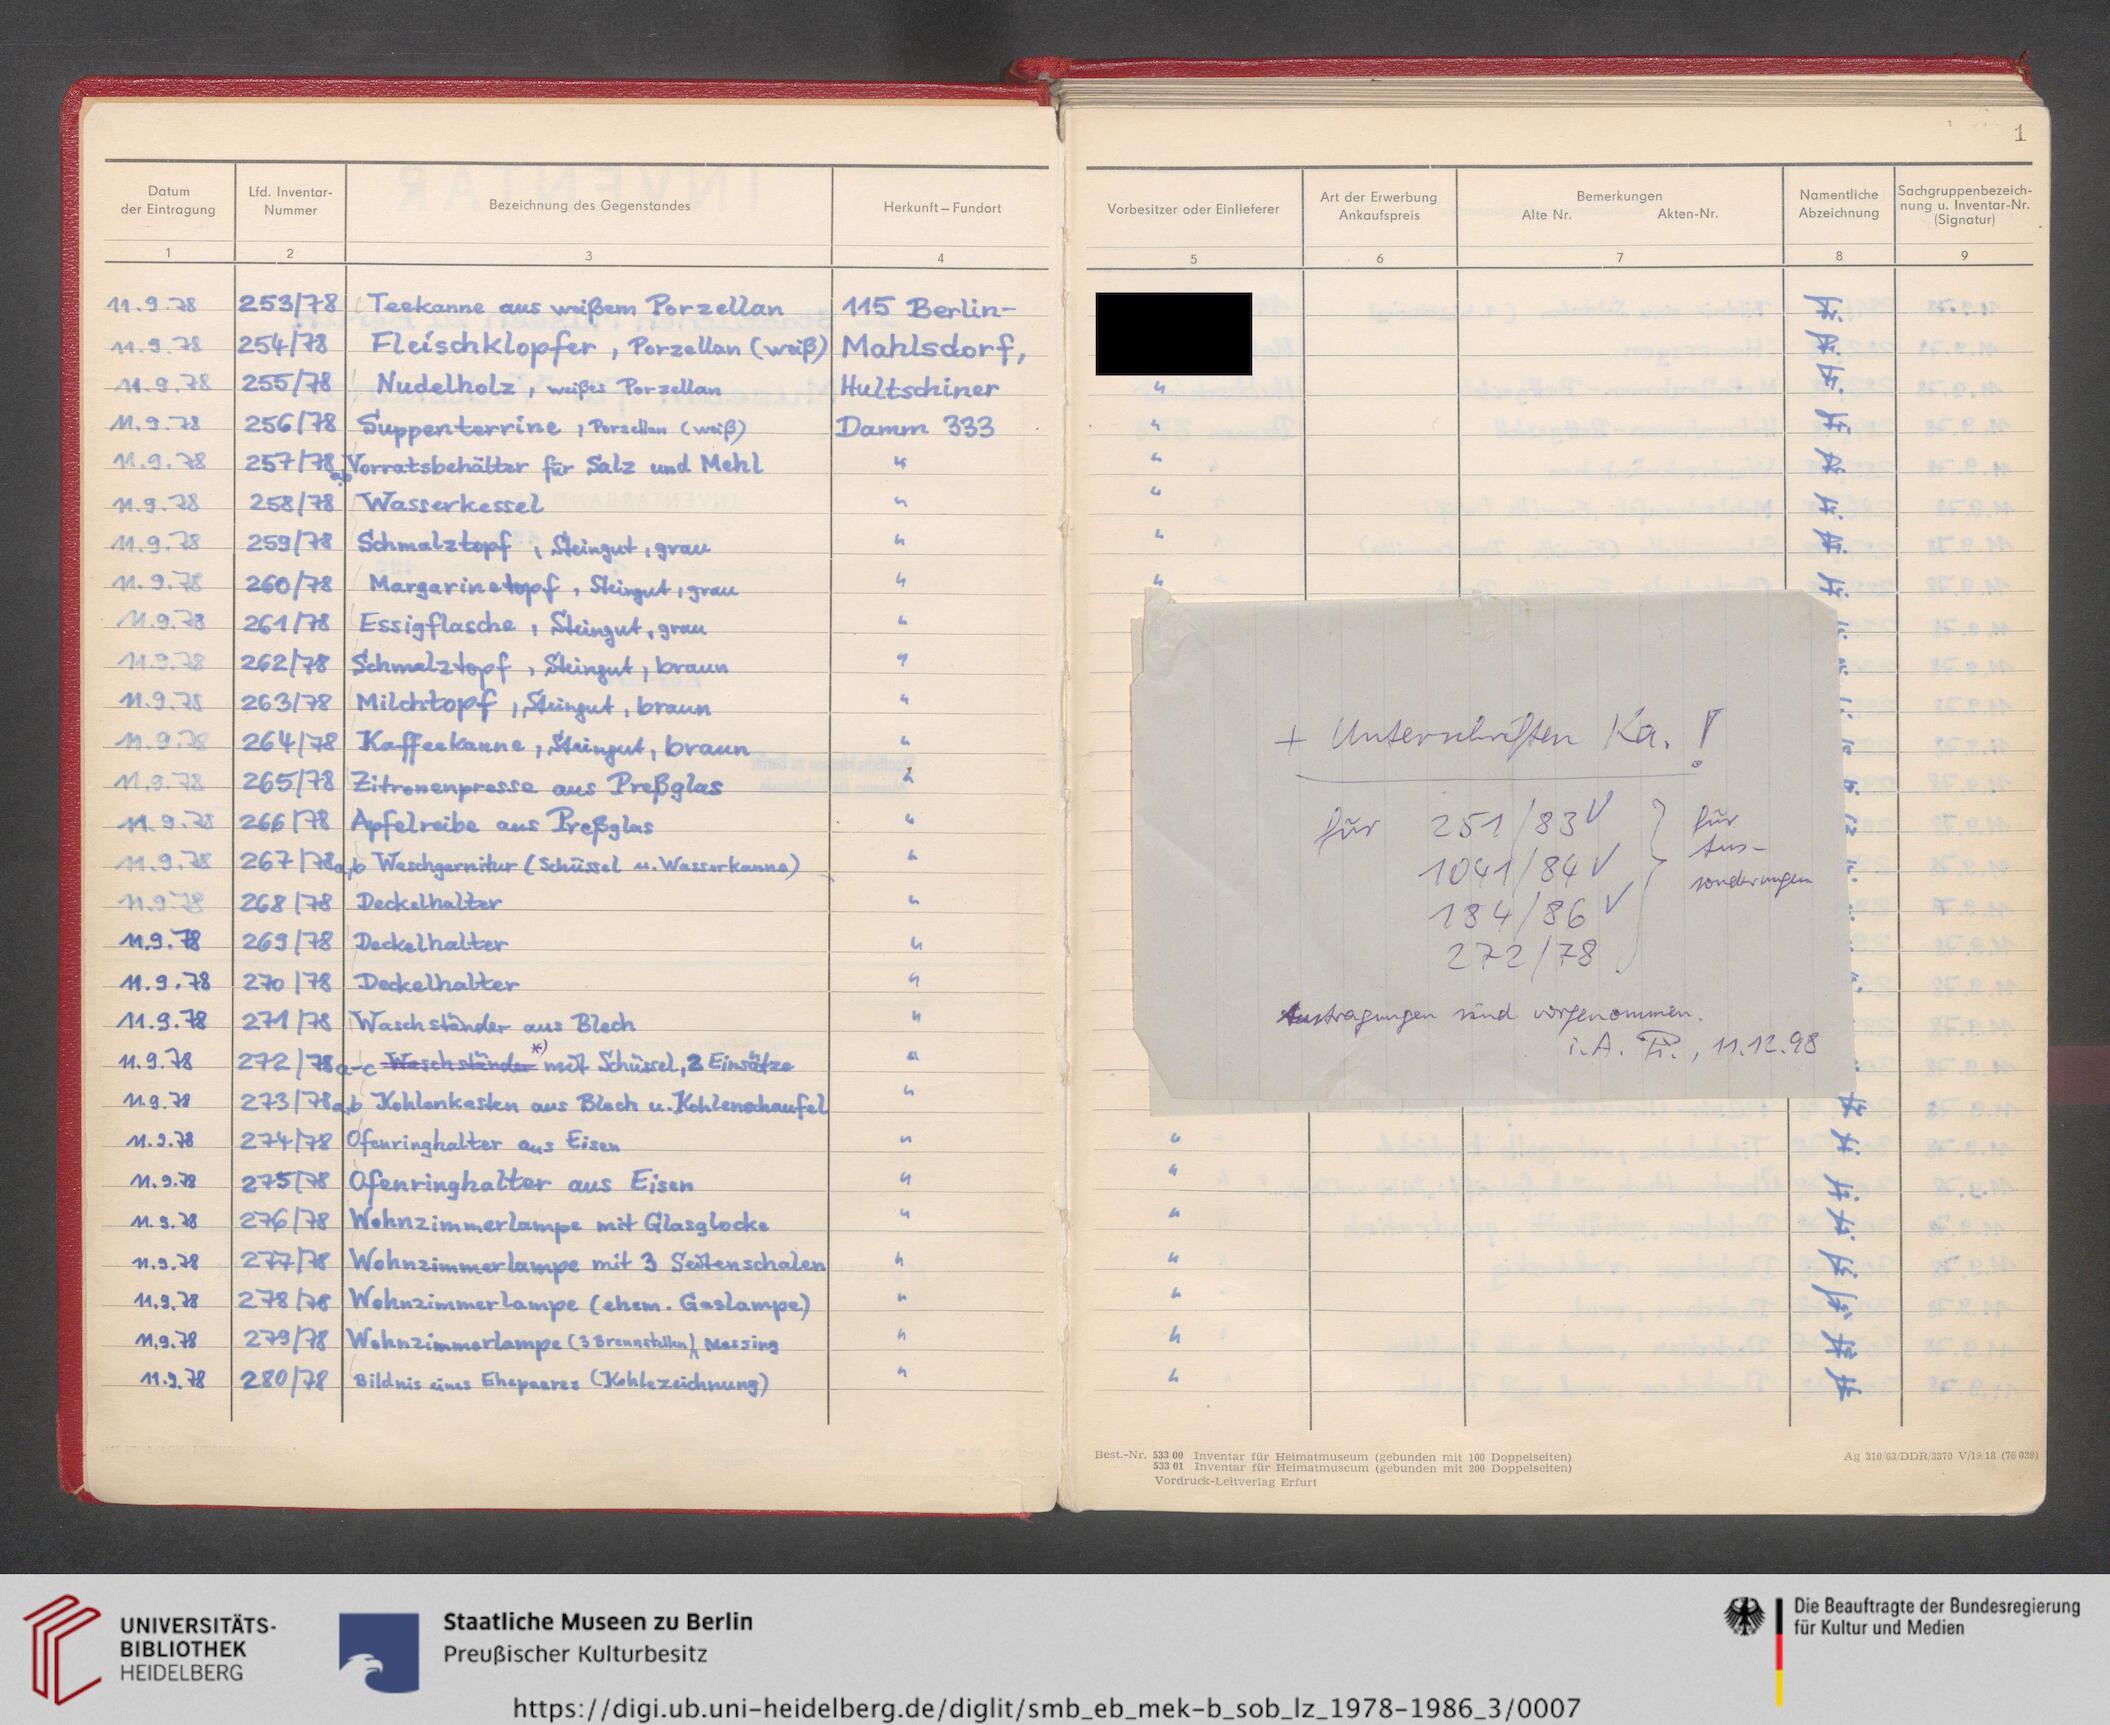 1
Datum der Eintragung | Lfd. Inventar-Nummer | Bezeichnung des Gegenstandes | Herkunft – Fundort | Vorbesitzer oder Einlieferer | Art der Erwerbung Ankaufspreis | Bemerkungen Alte Nr. Akten-Nr. | Namentliche Abzeichnung | Sachgruppenbezeichnung u. Inventar-Nr. (Signatur)
1 2 3 4 5 6 7 8 9
11.9.78 253/78 Teekanne aus weißem Porzellan 115 Berlin-
11.9.78 254/78 Fleischklopfer, Porzellan (weiß) Mahlsdorf,
11.9.78 255/78 Nudelholz, weißes Porzellan Hultschiner "
11.9.78 256/78 Suppenterrine, Porzellan (weiß) Damm 333 "
11.9.78 257/78 a,b Vorratsbehälter für Salz und Mehl " "
11.9.78 258/78 Wasserkessel " "
11.9.78 259/78 Schmalztopf, Steingut, grau " "
11.9.78 260/78 Margarinetopf, Steingut, grau " "
11.9.78 261/78 Essigflasche, Steingut, grau "
11.9.78 262/78 Schmalztopf, Steingut, braun "
11.9.78 263/78 Milchtopf, Steingut, braun "
11.9.78 264/78 Kaffeekanne, Steingut, braun "
11.9.78 265/78 Zitronenpresse aus Preßglas "
11.9.78 266/78 Apfelreibe aus Preßglas "
11.9.78 267/78 a,b Waschgarnitur (Schüssel u. Wasserkanne) "
11.9.78 268/78 Deckelhalter "
11.9.78 269/78 Deckelhalter "
11.9.78 270/78 Deckelhalter "
11.9.78 271/78 Waschständer aus Blech "
11.9.78 272/78 a-c Waschständer *) mit Schüssel, 2 Einsätze "
11.9.78 273/78 a,b Kohlenkasten aus Blech u. Kohlenschaufel "
11.9.78 274/78 Ofenringhalter aus Eisen " "
11.9.78 275/78 Ofenringhalter aus Eisen " "
11.9.78 276/78 Wohnzimmerlampe mit Glasglocke " "
11.9.78 277/78 Wohnzimmerlampe mit 3 Seitenschalen " "
11.9.78 278/78 Wohnzimmerlampe (ehem. Gaslampe) " "
11.9.78 279/78 Wohnzimmerlampe (3 Brennstellen), Messing " "
11.9.78 280/78 Bildnis eines Ehepaares (Kohlezeichnung) " "
+ Unterschriften Ka. !
für 251/83 V } für
1041/84 V Aus-
184/86 V sonderungen
272/78
Austragungen sind vorgenommen.
i.A. , 11.12.98
Best.-Nr. 533 00 Inventar für Heimatmuseum (gebunden mit 100 Doppelseiten)
533 01 Inventar für Heimatmuseum (gebunden mit 200 Doppelseiten)
Vordruck-Leitverlag Erfurt
Ag 310/63/DDR/3370 V/19/18 (76 039)
UNIVERSITÄTS-
BIBLIOTHEK
HEIDELBERG
Staatliche Museen zu Berlin
Preußischer Kulturbesitz
Die Beauftragte der Bundesregierung
für Kultur und Medien
https://digi.ub.uni-heidelberg.de/diglit/smb_eb_mek-b_sob_lz_1978-1986_3/0007